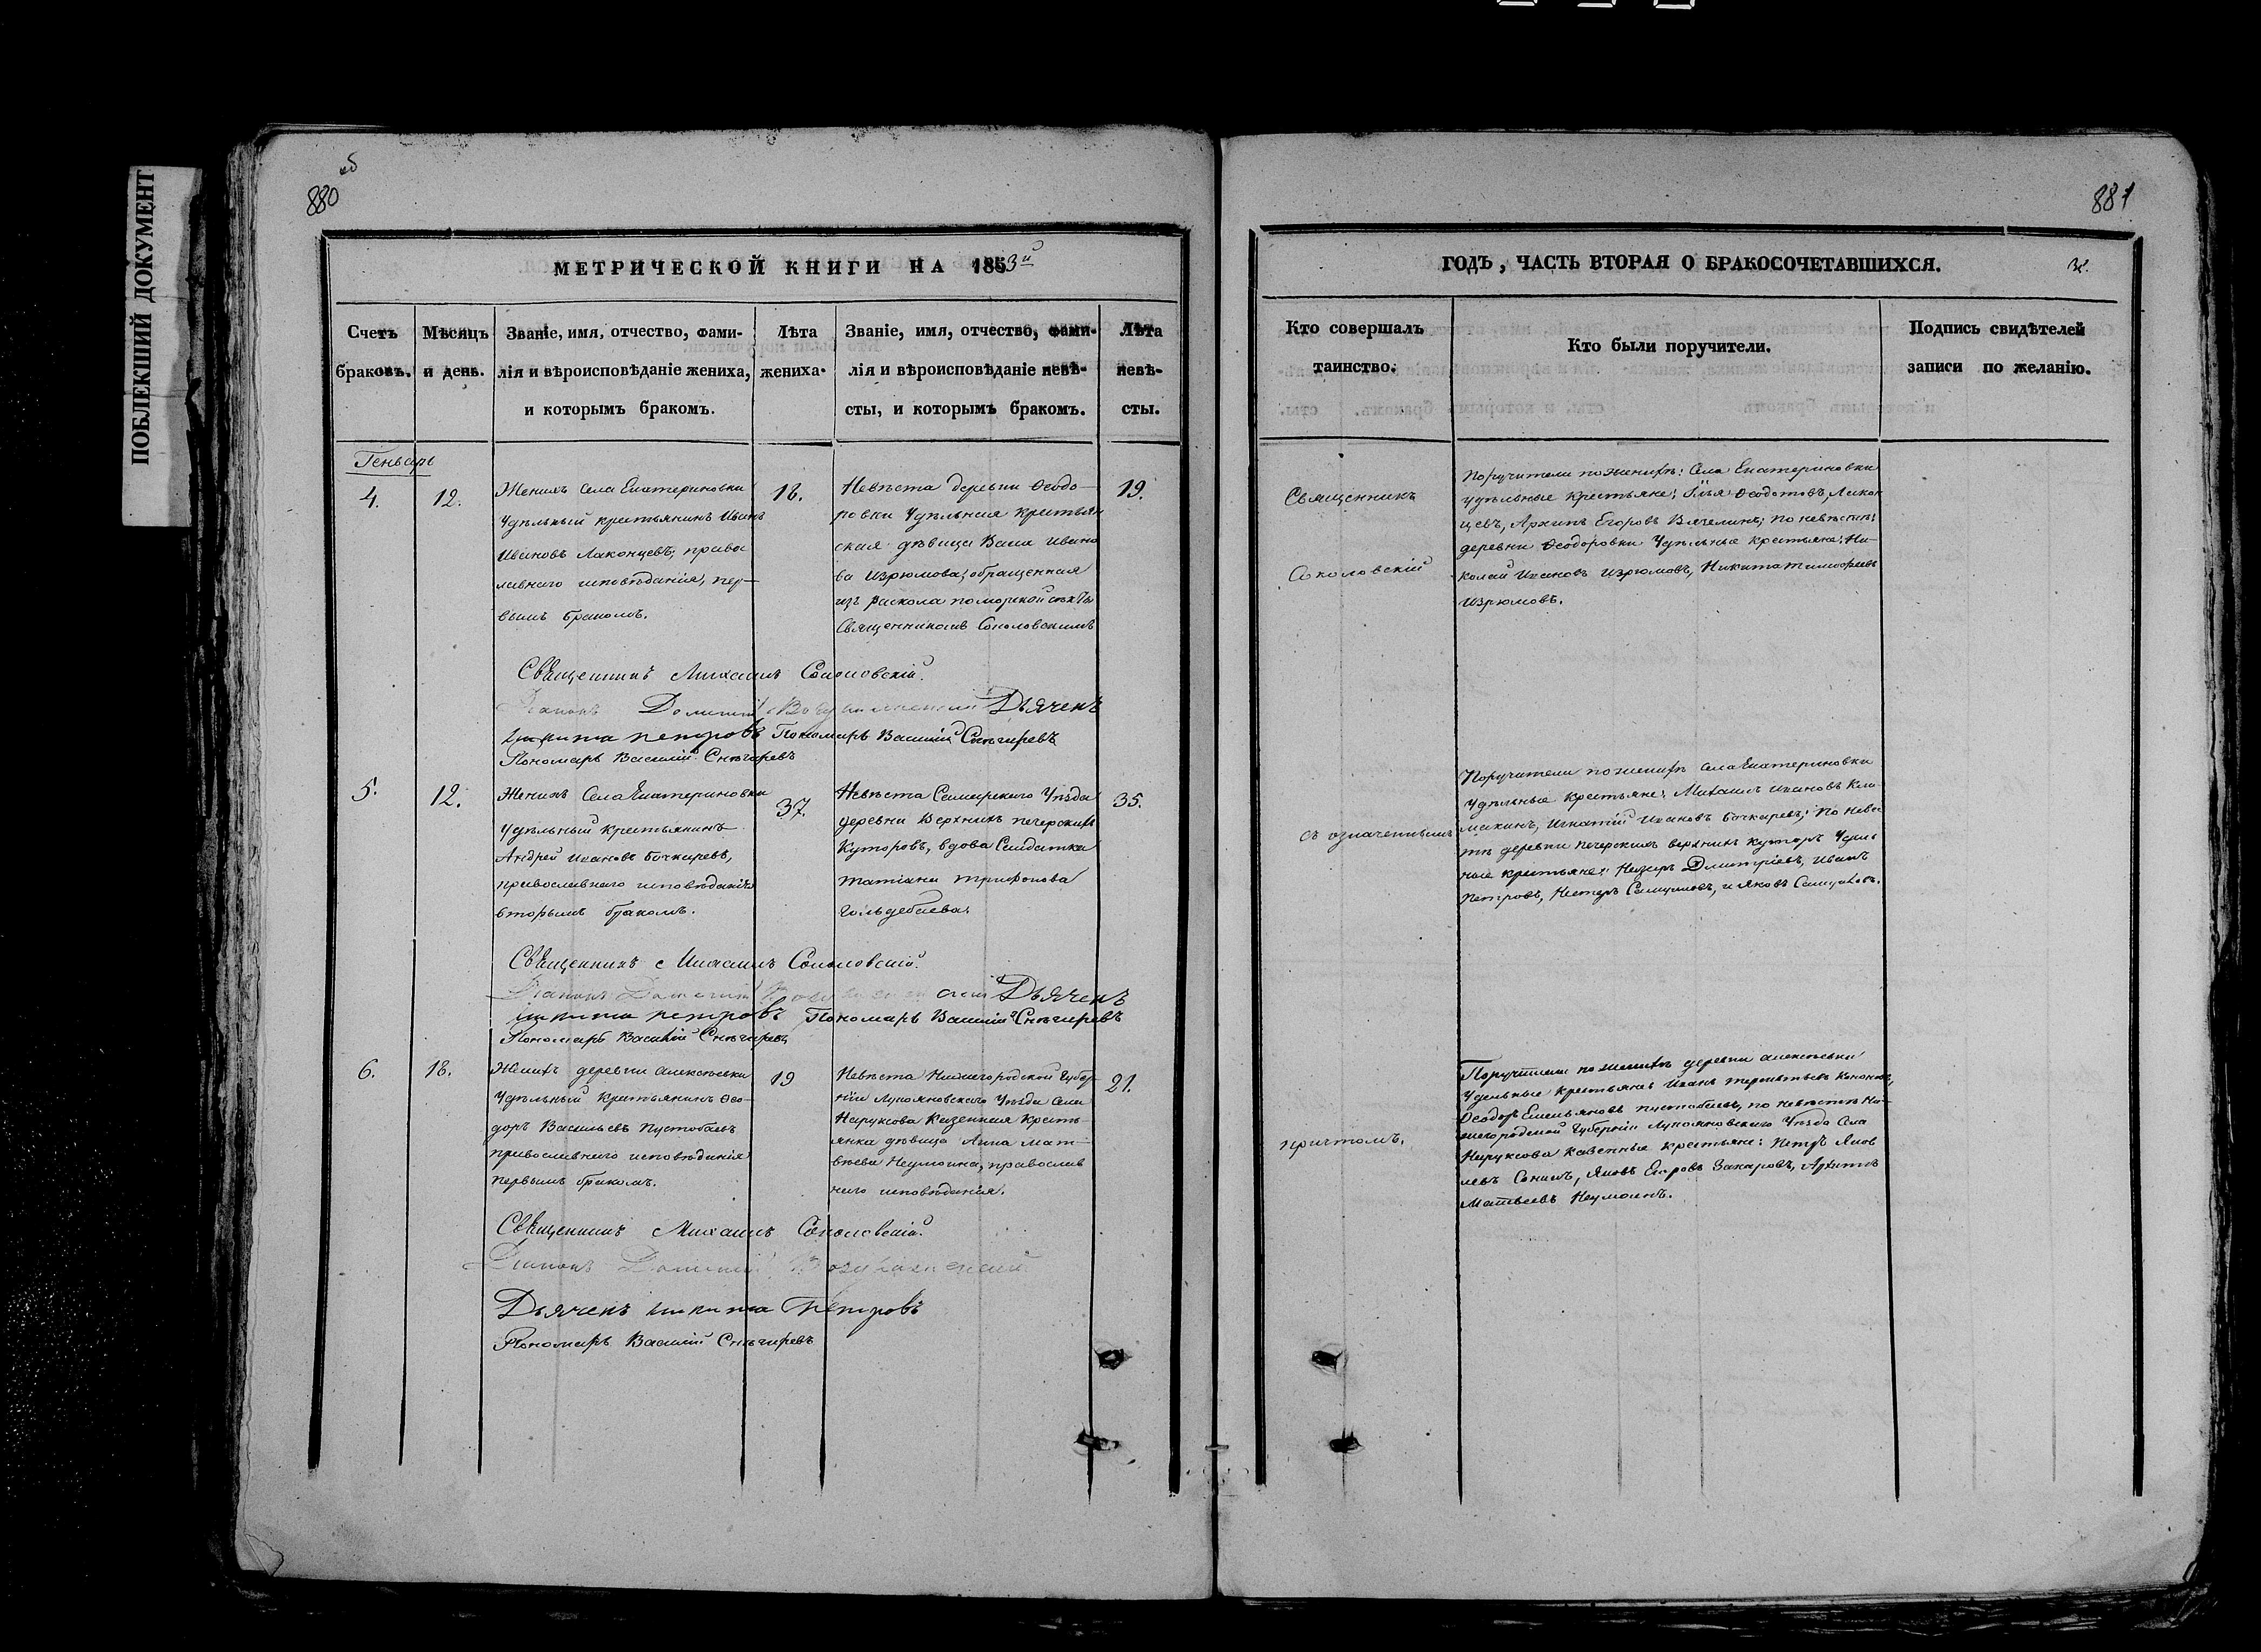 ПОБЛЕКШИЙ ДОКУМЕНТ
880 об
МЕТРИЧЕСКОЙ КНИГИ НА 1853й
Счетъ браковъ.
Мѣсяцъ и день.
Званіе, имя, отчество, фами-
лія и вѣроисповѣданіе жениха,
и которымъ бракомъ.
Лѣта
жениха.
Званіе, имя, отчество, фами-
лія и вѣроисповѣданіе невѣ-
сты, и которымъ бракомъ.
Лѣта
невѣ-
сты.
Геньварь
4.
12.
Женихъ села Екатериновки
Удѣльный крестьянинъ Иванъ
Ивановъ Лаконцевъ, право
славнаго исповѣданія, пер-
вымъ бракомъ.
18.
Невѣста деревни Ѳеодо-
ровки Удѣльная крестьян
ская дѣвица Васса Ивано
ва Изрюмова, обращенная
изъ раскола поморской секты
Священникомъ Соколовскимъ
19.
Священникъ Михаилъ Соколовскій.
Діаконъ Дьячекъ
Никита Петровъ Пономарь Василій Снѣгиревъ
Пономарь Василій Снѣгиревъ
5.
12.
Женихъ Села Екатериновки
Удѣльный крестьянинъ
Андрей Ивановъ Бочкаревъ,
православнаго исповѣданія
вторымъ бракомъ.
37.
Невѣста Самарскаго Уѣзда
деревни Верхнихъ печерскихъ
Хуторовъ, вдова Солдатка
Татіана Трифонова
Гольдебаева.
35.
Священникъ Михаилъ Соколовскій.
Діаконъ Дьячекъ
Никита Петровъ Пономарь Василій Снѣгиревъ
Пономарь Василій Снѣгиревъ
6.
18.
Женихъ деревни Алексѣевки
Удѣльный Крестьянинъ Ѳео-
доръ Васильевъ Пустобаевъ
православнаго исповѣданія
первымъ бракомъ.
19
Невѣста Нижегородской Губер-
ніи Лукояновскаго Уѣзда Села
Наруксова Казенная Кресть-
янка дѣвица Анна Мат-
вѣева Неумоина, православ
наго исповѣданія.
21.
Священникъ Михаилъ Соколовскій.
Діаконъ
Дьячекъ Никита Петровъ
Пономарь Василій Снѣгиревъ
881
ГОДЪ, ЧАСТЬ ВТОРАЯ О БРАКОСОЧЕТАВШИХСЯ.
Кто совершалъ
таинство.
Кто были поручители.
Подпись свидѣтелей
записи по желанію.
Священникъ
Соколовскій
Поручители по женихѣ: Села Екатериновки
удѣльные крестьяне: Илья Ѳеодотовъ, Лакон
цевъ, Архипъ Егоровъ по невѣстѣ:
деревни Ѳеодоровки Удѣльные крестьяне: Ни-
колай Ивановъ Изрюмовъ, Никита Тимофеевъ
Изрюмовъ.
съ означеннымъ
Поручители по женихѣ села Екатериновки
Удѣльные крестьяне: Михаилъ Ивановъ
Игнатій Ивановъ Бочкаревъ; По невѣс
тѣ деревни печерскихъ верхнихъ хуторъ Удѣль
ные крестьяне: Назаръ Дмитріевъ, Иванъ
Петровъ, Нестеръ и Яковъ
причтомъ.
Поручители по женихѣ деревни Алексѣевки
Удѣльные крестьяне: Иванъ Терентьевъ Кононовъ,
Ѳеодоръ Емельяновъ Пустобаевъ, по невѣстѣ Ни-
жегородской Губерніи Лукояновскаго Уѣзда Села
Наруксова Казенные крестьяне: Петръ Яков
левъ Яковъ Егоровъ Захаровъ,
Матвеевъ Неумоинъ.